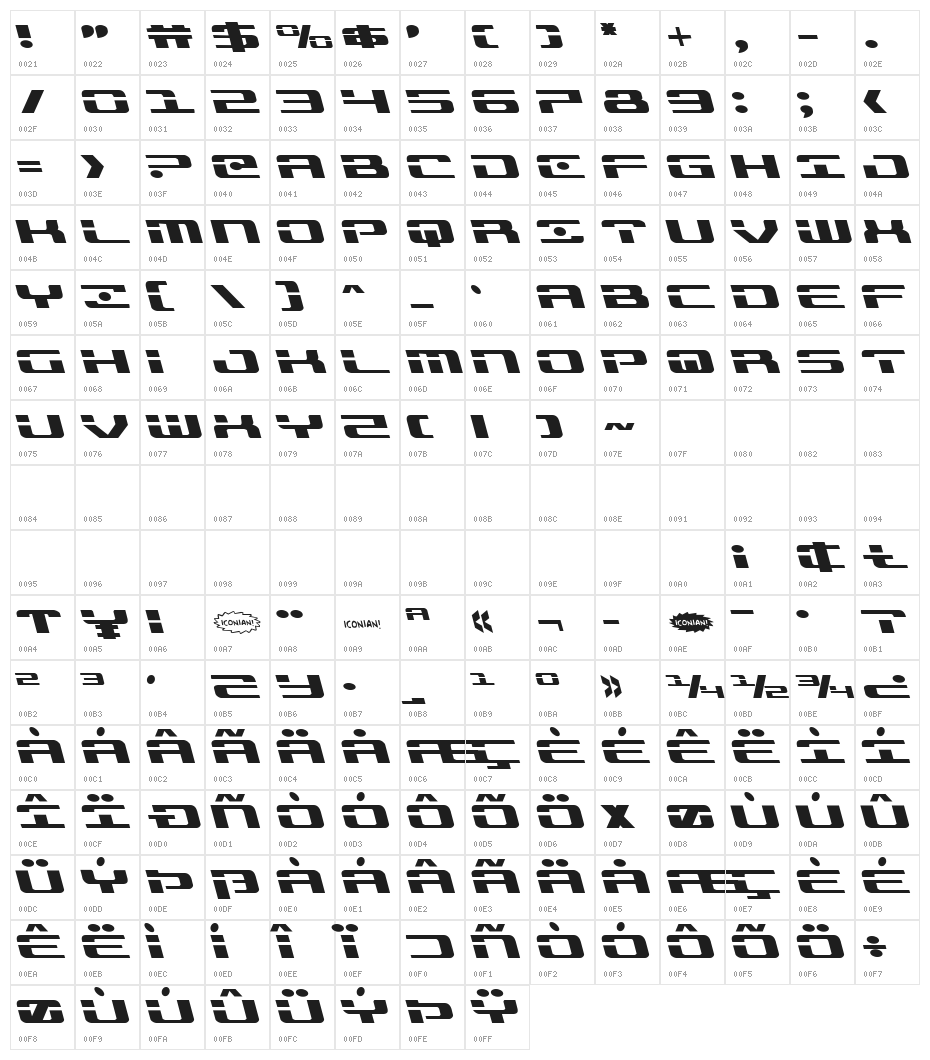 ! " # $ % & ' ( ) * + , - .
0021 0022 0023 0024 0025 0026 0027 0028 0029 002A 002B 002C 002D 002E
/ 0 1 2 3 4 5 6 7 8 9 : ; <
002F 0030 0031 0032 0033 0034 0035 0036 0037 0038 0039 003A 003B 003C
= > ? @ A B C D E F G H I J
003D 003E 003F 0040 0041 0042 0043 0044 0045 0046 0047 0048 0049 004A
K L M N O P Q R S T U V W X
004B 004C 004D 004E 004F 0050 0051 0052 0053 0054 0055 0056 0057 0058
Y Z [ \ ] ^ _ ` A B C D E F
0059 005A 005B 005C 005D 005E 005F 0060 0061 0062 0063 0064 0065 0066
G H I J K L M N O P Q R S T
0067 0068 0069 006A 006B 006C 006D 006E 006F 0070 0071 0072 0073 0074
U V W X Y Z { | } ~
0075 0076 0077 0078 0079 007A 007B 007C 007D 007E 007F 0080 0082 0083
0084 0085 0086 0087 0088 0089 008A 008B 008C 008E 0091 0092 0093 0094
¡ ¢ £
0095 0096 0097 0098 0099 009A 009B 009C 009E 009F 00A0 00A1 00A2 00A3
¤ ¥ ¦ ICONIAN! ¨ ICONIAN! ª « ¬ - ICONIAN! ¯ ° ±
00A4 00A5 00A6 00A7 00A8 00A9 00AA 00AB 00AC 00AD 00AE 00AF 00B0 00B1
² ³ ´ µ ¶ · ¸ ¹ º » ¼ ½ ¾ ¿
00B2 00B3 00B4 00B5 00B6 00B7 00B8 00B9 00BA 00BB 00BC 00BD 00BE 00BF
À Á Â Ã Ä Å Æ Ç È É Ê Ë Ì Í
00C0 00C1 00C2 00C3 00C4 00C5 00C6 00C7 00C8 00C9 00CA 00CB 00CC 00CD
Î Ï Ð Ñ Ò Ó Ô Õ Ö × Ø Ù Ú Û
00CE 00CF 00D0 00D1 00D2 00D3 00D4 00D5 00D6 00D7 00D8 00D9 00DA 00DB
Ü Ý Þ ß À Á Â Ã Ä Å Æ Ç È É
00DC 00DD 00DE 00DF 00E0 00E1 00E2 00E3 00E4 00E5 00E6 00E7 00E8 00E9
Ê Ë Ì Í Î Ï ð Ñ Ò Ó Ô Õ Ö ÷
00EA 00EB 00EC 00ED 00EE 00EF 00F0 00F1 00F2 00F3 00F4 00F5 00F6 00F7
Ø Ù Ú Û Ü Ý Þ Ÿ
00F8 00F9 00FA 00FB 00FC 00FD 00FE 00FF